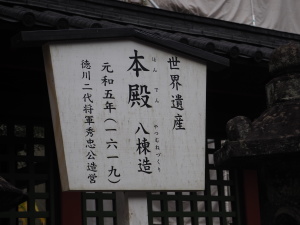 世界遺産
本殿 八棟造
ほんでん やつむねづくり
元和五年(一六一九)
徳川二代将軍秀忠公造営